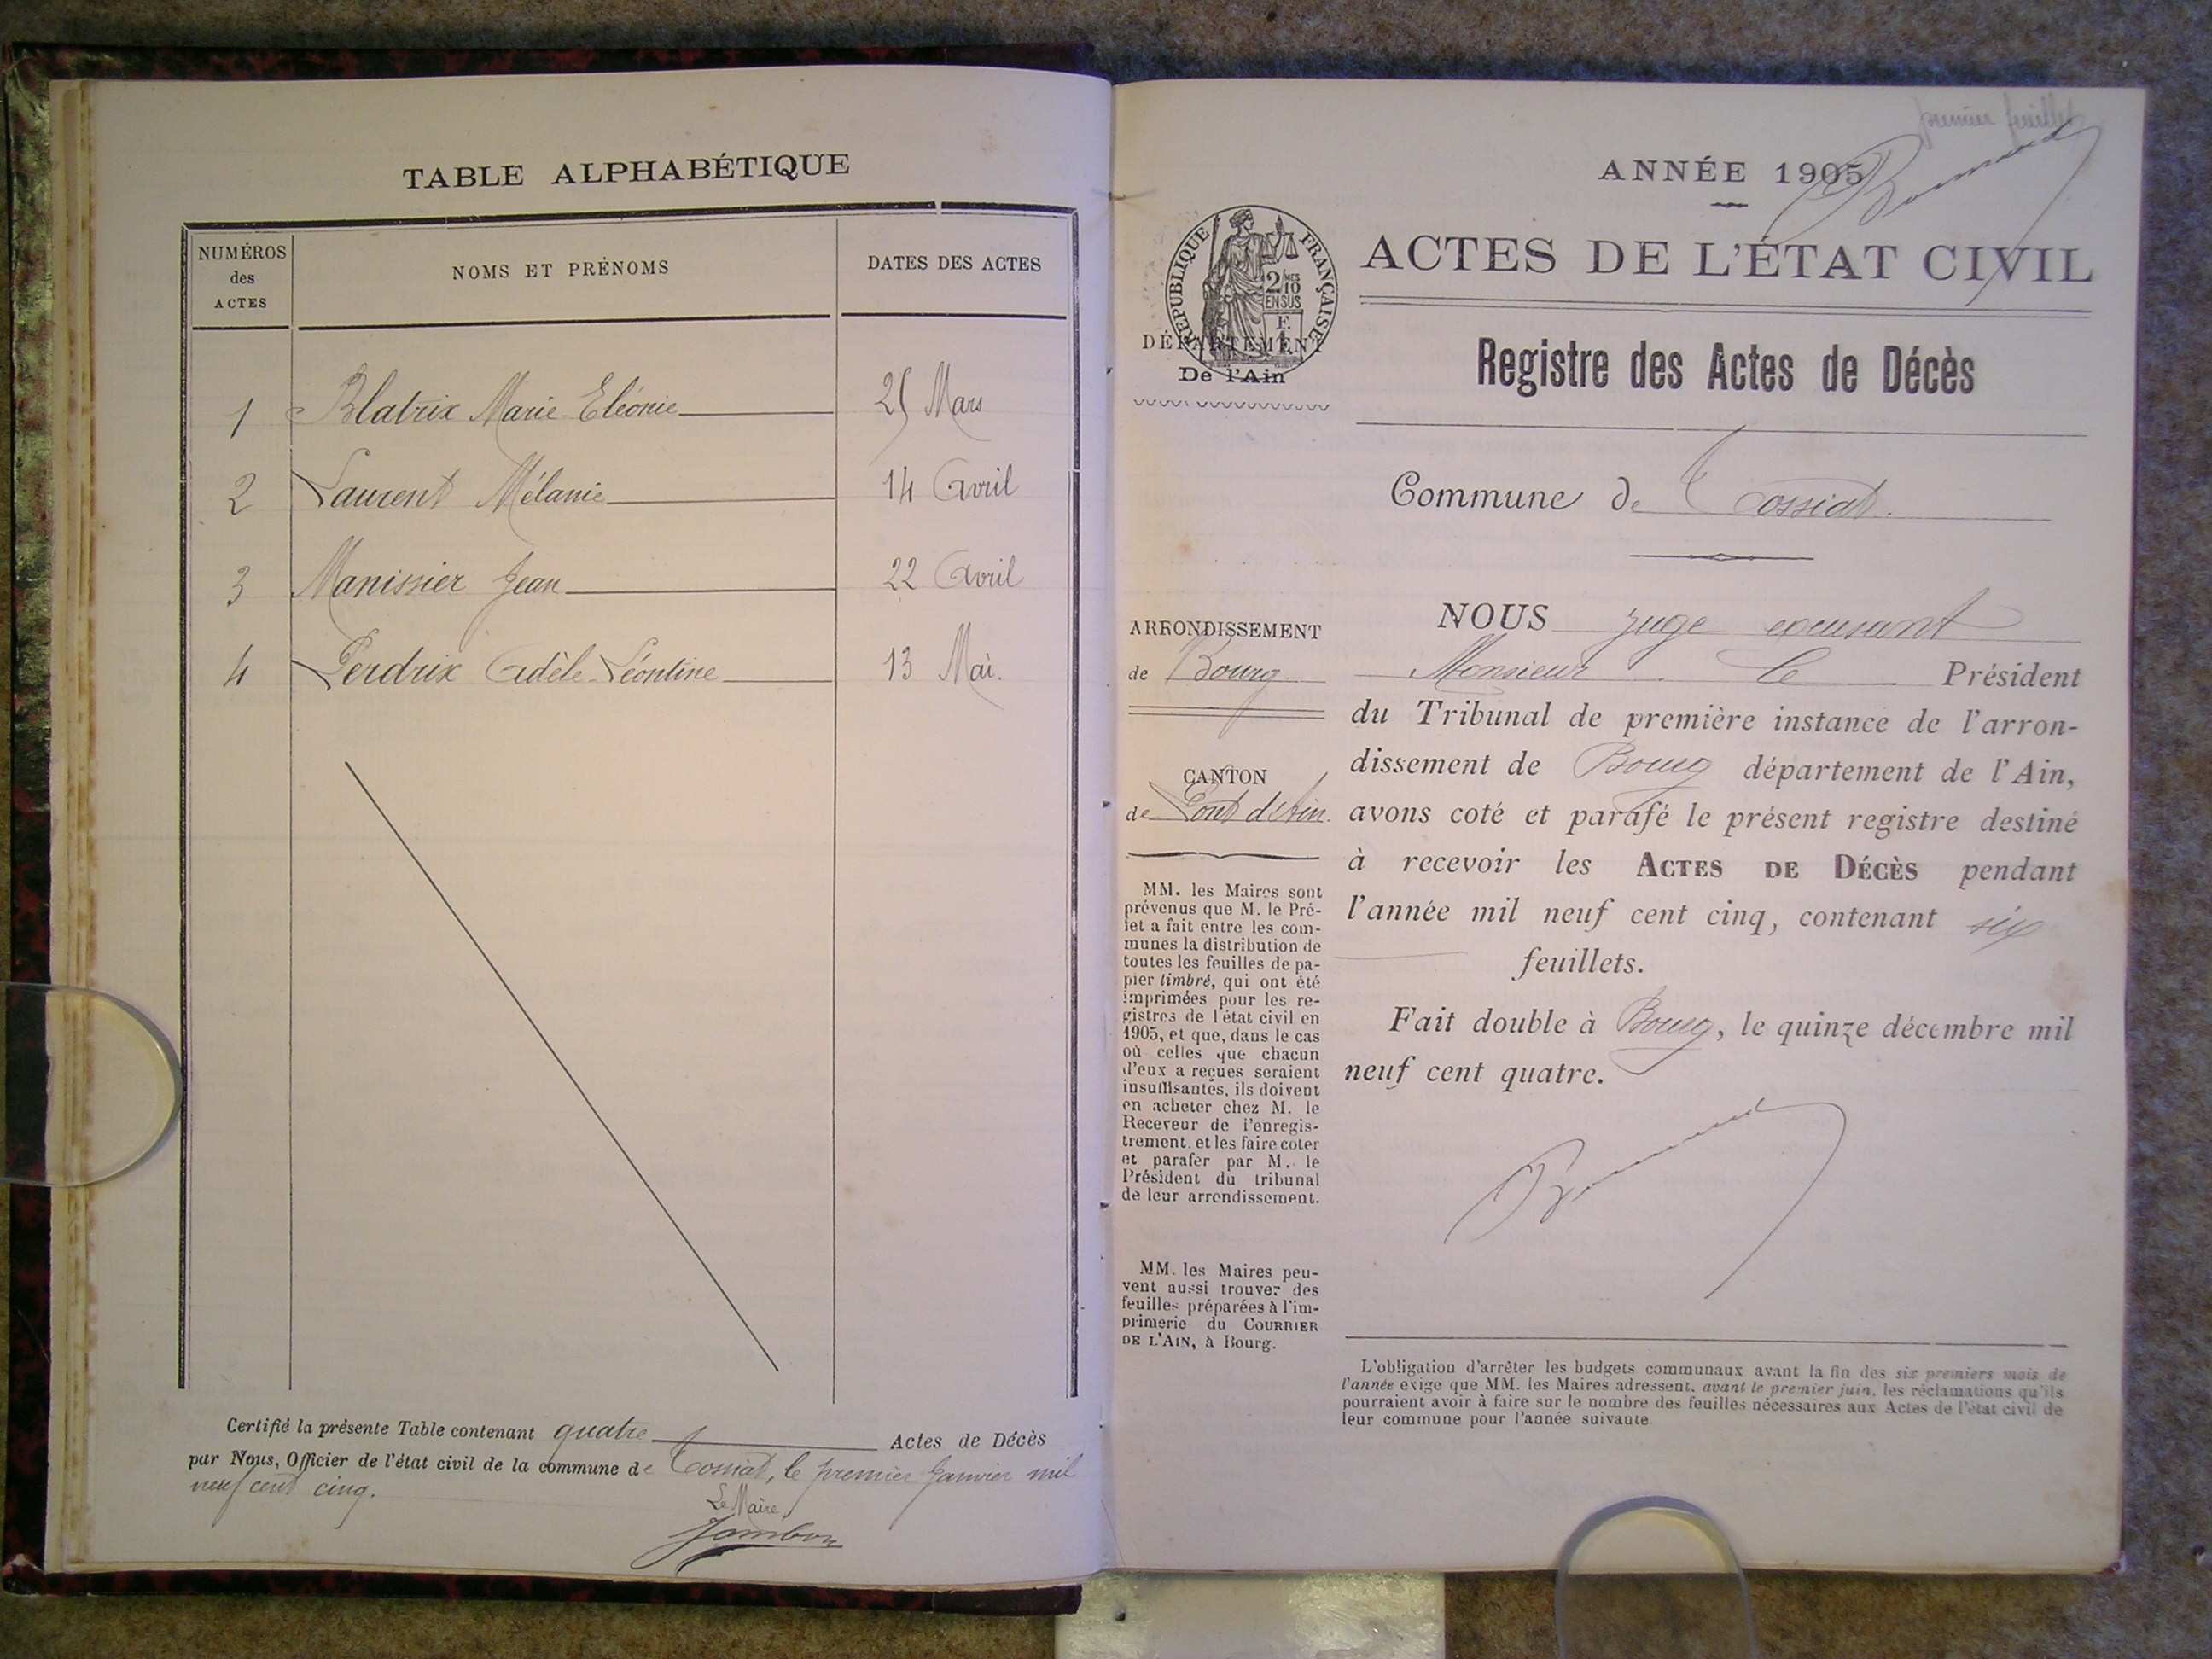 TABLE ALPHABÉTIQUE
NUMÉROS
des
ACTES
NOMS ET PRÉNOMS
DATES DES ACTES
1 Blatrix Marie-Eléonie 25 Mars
2 Laurent Mélanie 14 Avril
3 Manissier Jean 22 Avril
4 Perdrix Adèle-Léontine 13 Mai.
Certifié la présente Table contenant quatre Actes de Décès
par Nous, Officier de l'état civil de la commune de Tossiat, le premier Janvier mil
neuf cent cinq.
Le Maire
Jambon
premier feuillet
ANNÉE 1905
ACTES DE L'ÉTAT CIVIL
RÉPUBLIQUE FRANÇAISE
2/10 MES
EN SUS
F.
1
DÉPARTEMENT
De l'Ain
Registre des Actes de Décès
Commune de Tossiat.
ARRONDISSEMENT
de Bourg
CANTON
de Pont d'Ain.
MM. les Maires sont
prévenus que M. le Pré-
fet a fait entre les com-
munes la distribution de
toutes les feuilles de pa-
pier timbré, qui ont été
imprimées pour les re-
gistres de l'état civil en
1905, et que, dans le cas
où celles que chacun
d'eux a reçues seraient
insuffisantes, ils doivent
en acheter chez M. le
Receveur de l'enregis-
trement, et les faire coter
et parafer par M. le
Président du tribunal
de leur arrondissement.
MM. les Maires peu-
vent aussi trouver des
feuilles préparées à l'im-
primerie du COURRIER
DE L'AIN, à Bourg.
NOUS Juge excusant
Monsieur le Président
du Tribunal de première instance de l'arron-
dissement de Bourg département de l'Ain,
avons coté et parafé le présent registre destiné
à recevoir les ACTES DE DÉCÈS pendant
l'année mil neuf cent cinq, contenant six
feuillets.
Fait double à Bourg, le quinze décembre mil
neuf cent quatre.
L'obligation d'arrêter les budgets communaux avant la fin des six premiers mois de
l'année exige que MM. les Maires adressent, avant le premier juin, les réclamations qu'ils
pourraient avoir à faire sur le nombre des feuilles nécessaires aux Actes de l'état civil de
leur commune pour l'année suivante